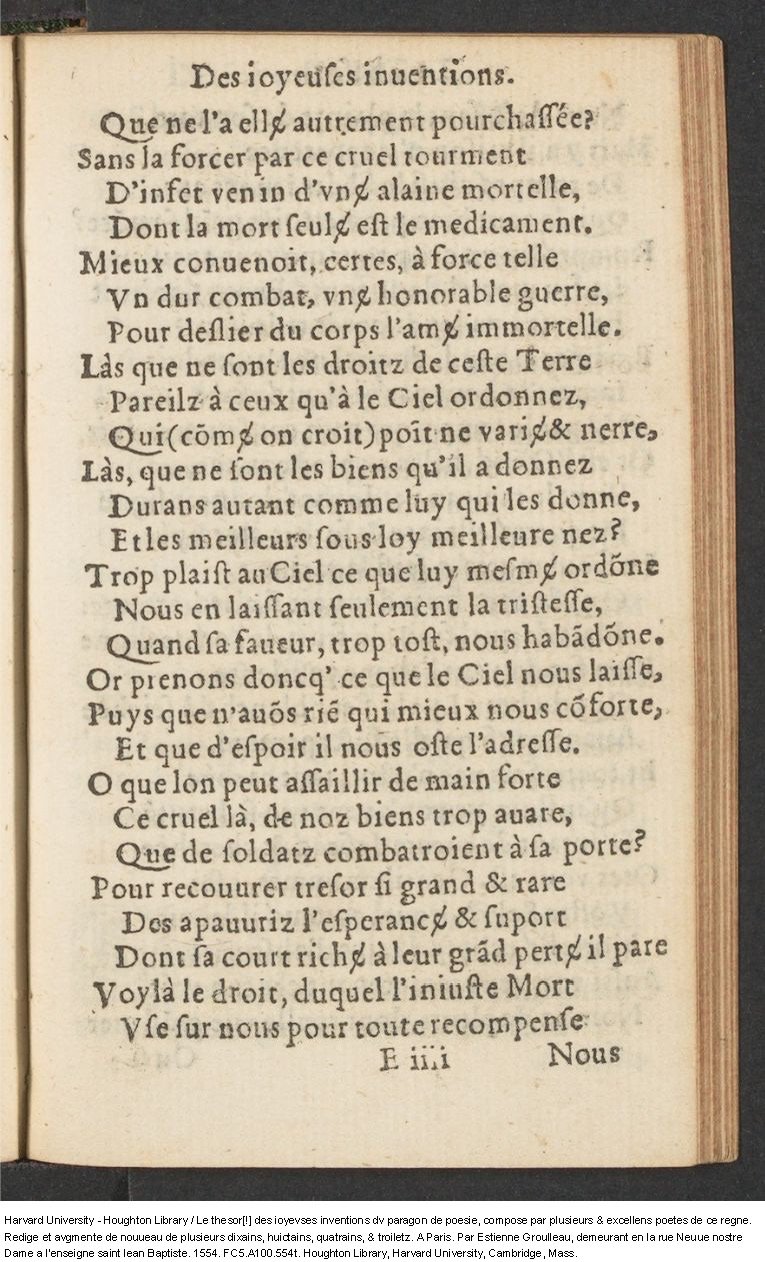 Des ioyeuſes inuentions.
Que ne l'a ellɇ autrement pourchaſſée?
Sans la forcer par ce cruel tourment
D'infet venin d'vnɇ alaine mortelle,
Dont la mort ſeulɇ eſt le medicament.
Mieux conuenoit, certes, à force telle
Vn dur combat, vnɇ honorable guerre,
Pour deſlier du corps l'amɇ immortelle.
Làs que ne ſont les droitz de ceſte Terre
Pareilz à ceux qu'à le Ciel ordonnez,
Qui (cõmɇ on croit) poît ne variɇ & n'erre,
Làs, que ne ſont les biens qu'il a donnez
Durans autant comme luy qui les donne,
Et les meilleurs ſous loy meilleure nez?
Trop plaiſt au Ciel ce que luy meſmɇ ordõne
Nous en laiſſant ſeulement la triſteſſe,
Quand ſa faueur, trop toſt, nous habãdõne.
Or prenons doncq' ce que le Ciel nous laiſſe,
Puys que n'auõs riẽ qui mieux nous cõforte,
Et que d'eſpoir il nous oſte l'adreſſe.
O que lon peut aſſaillir de main forte
Ce cruel là, de noz biens trop auare,
Que de ſoldatz combatroient à ſa porte?
Pour recouurer treſor ſi grand & rare
Des apauuriz l'eſperancɇ & ſuport
Dont ſa court richɇ à leur grãd pertɇ il pare
Voylà le droit, duquel l'iniuſte Mort
Vſe ſur nous pour toute recompenſe
E iiii Nous
Harvard University - Houghton Library / Le thesor[!] des ioyevses inventions dv paragon de poesie, compose par plusieurs & excellens poetes de ce regne.
Redige et avgmente de nouueau de plusieurs dixains, huictains, quatrains, & troiletz. A Paris. Par Estienne Groulleau, demeurant en la rue Neuue nostre
Dame a l'enseigne saint Iean Baptiste. 1554. FC5.A100.554t. Houghton Library, Harvard University, Cambridge, Mass.